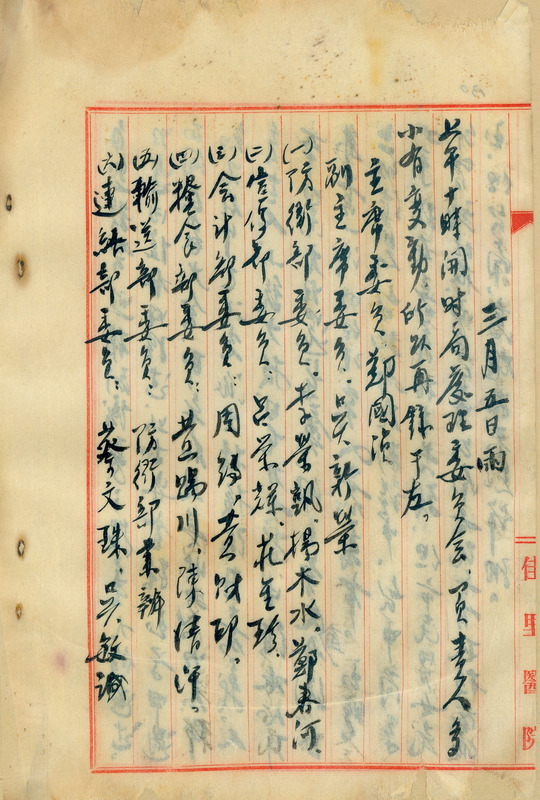 三月五日雨
上午十時開時局處理委員会，負責人多
小有变動，所以再錄于左。
主席委員 鄭國湞
副主席委員。吳新榮
(一)防衛部委員。李榮凱。楊木水。鄭春河。
(二)宣傳部委員：呂榮輝。莊金珍。
(三)会計部委員：周錦。黃財印。
(四)糧食部委員：黃踴川。陳清汗。
(五)輸送部委員： 防衛部兼辦
(六)連絡部委員： 蔡文珠。吳敏誠
佳里醫院